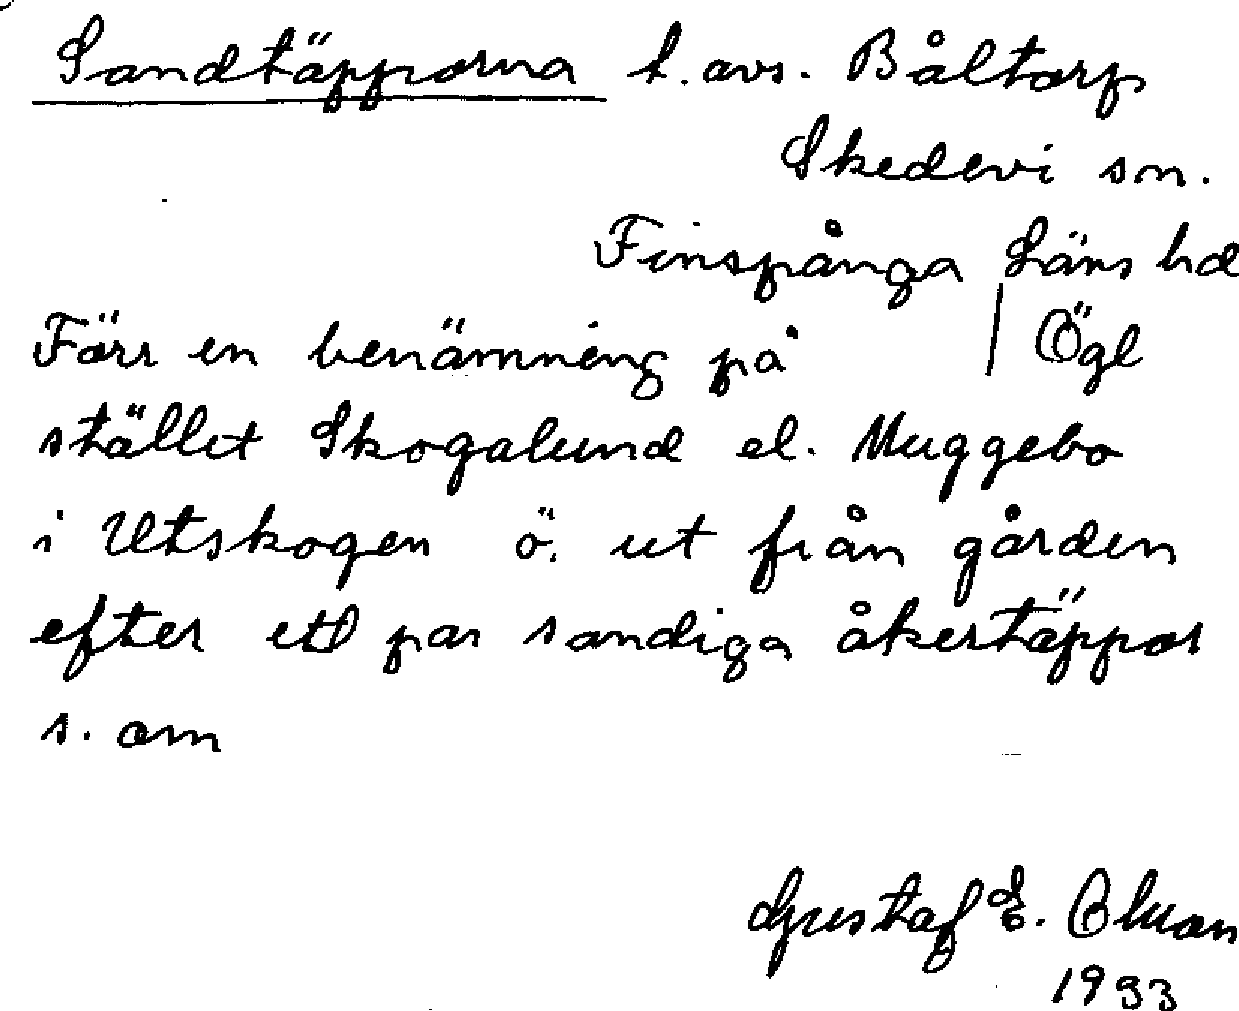 Sandtäpporna t. avs. Båltorp
Skedevi sn.
Finspånga Läns hd
Förr en benämning på / Ögl
stället Skogalund el. Muggebo
i Utskogen ö. ut från gården
efter ett par sandiga åkertäppor
s. om
Gustaf E.
1933